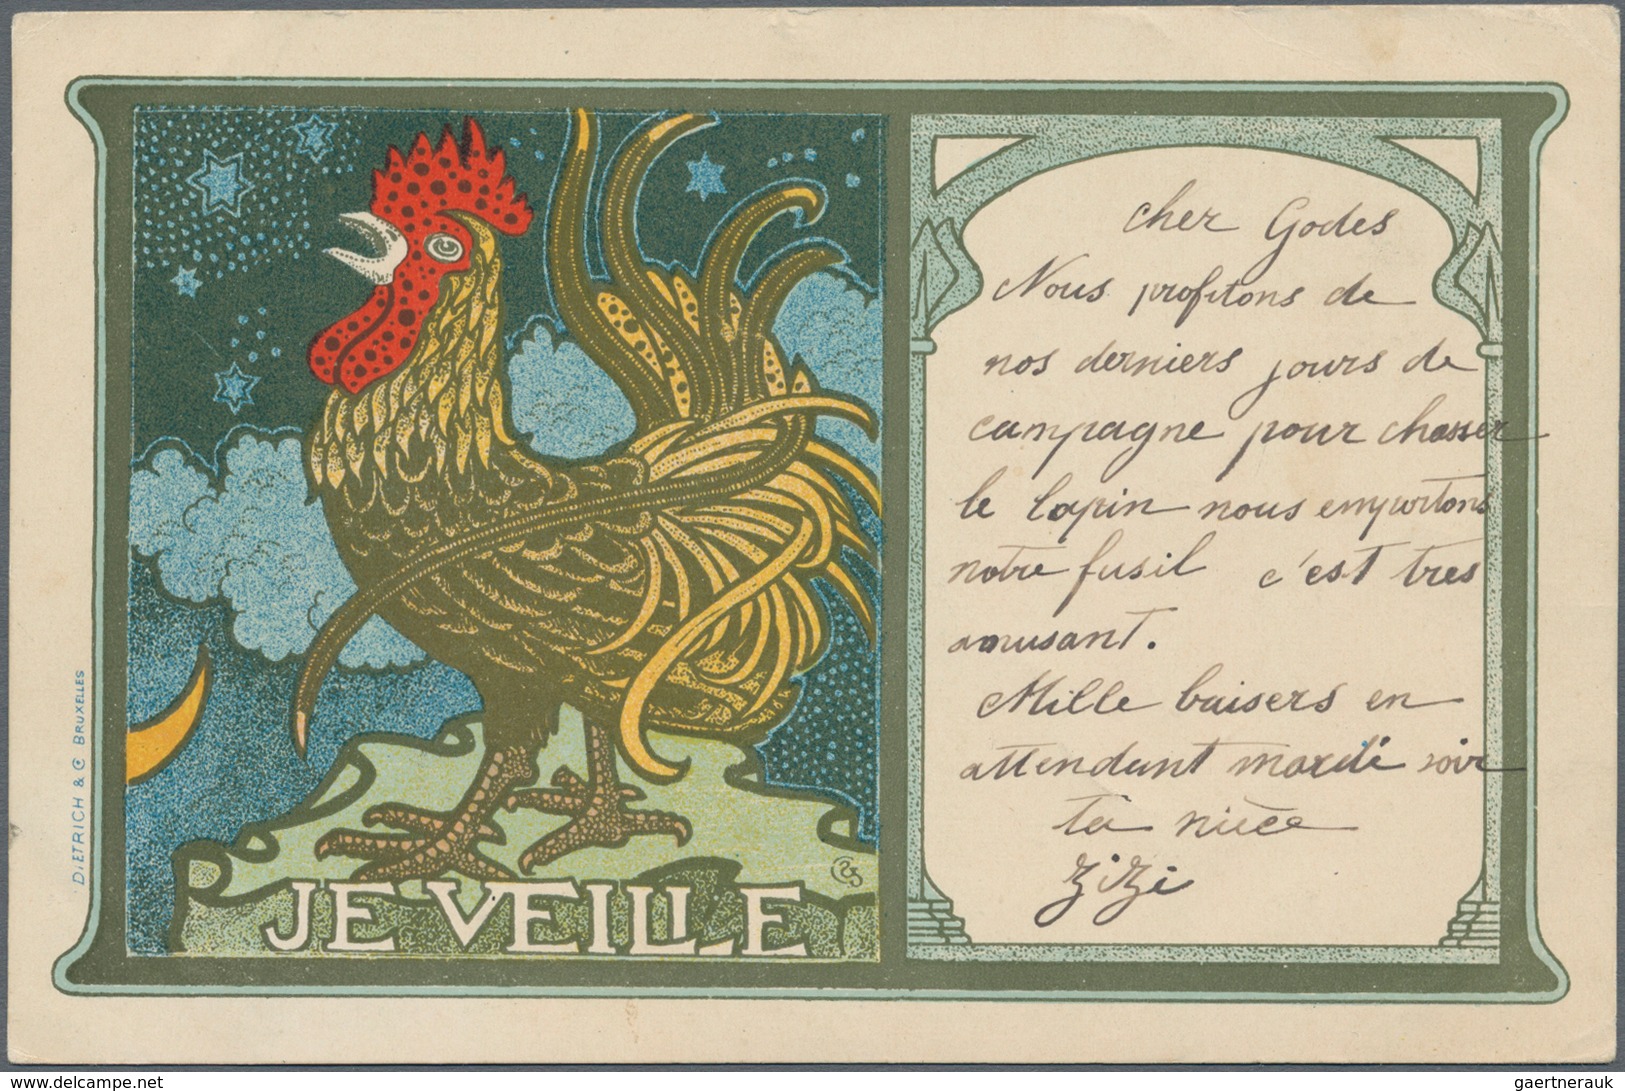 DIETRICH & Co BRUXELLES
JE VEILLE
cher Godes
Nous profitons de
nos derniers jours de
campagne pour chasser
le lapin nous emportons
notre fusil c'est tres
amusant.
Mille baisers en
attendant mardi soir
ta nièce
Zizi
www.delcampe.net
gaertnerauk